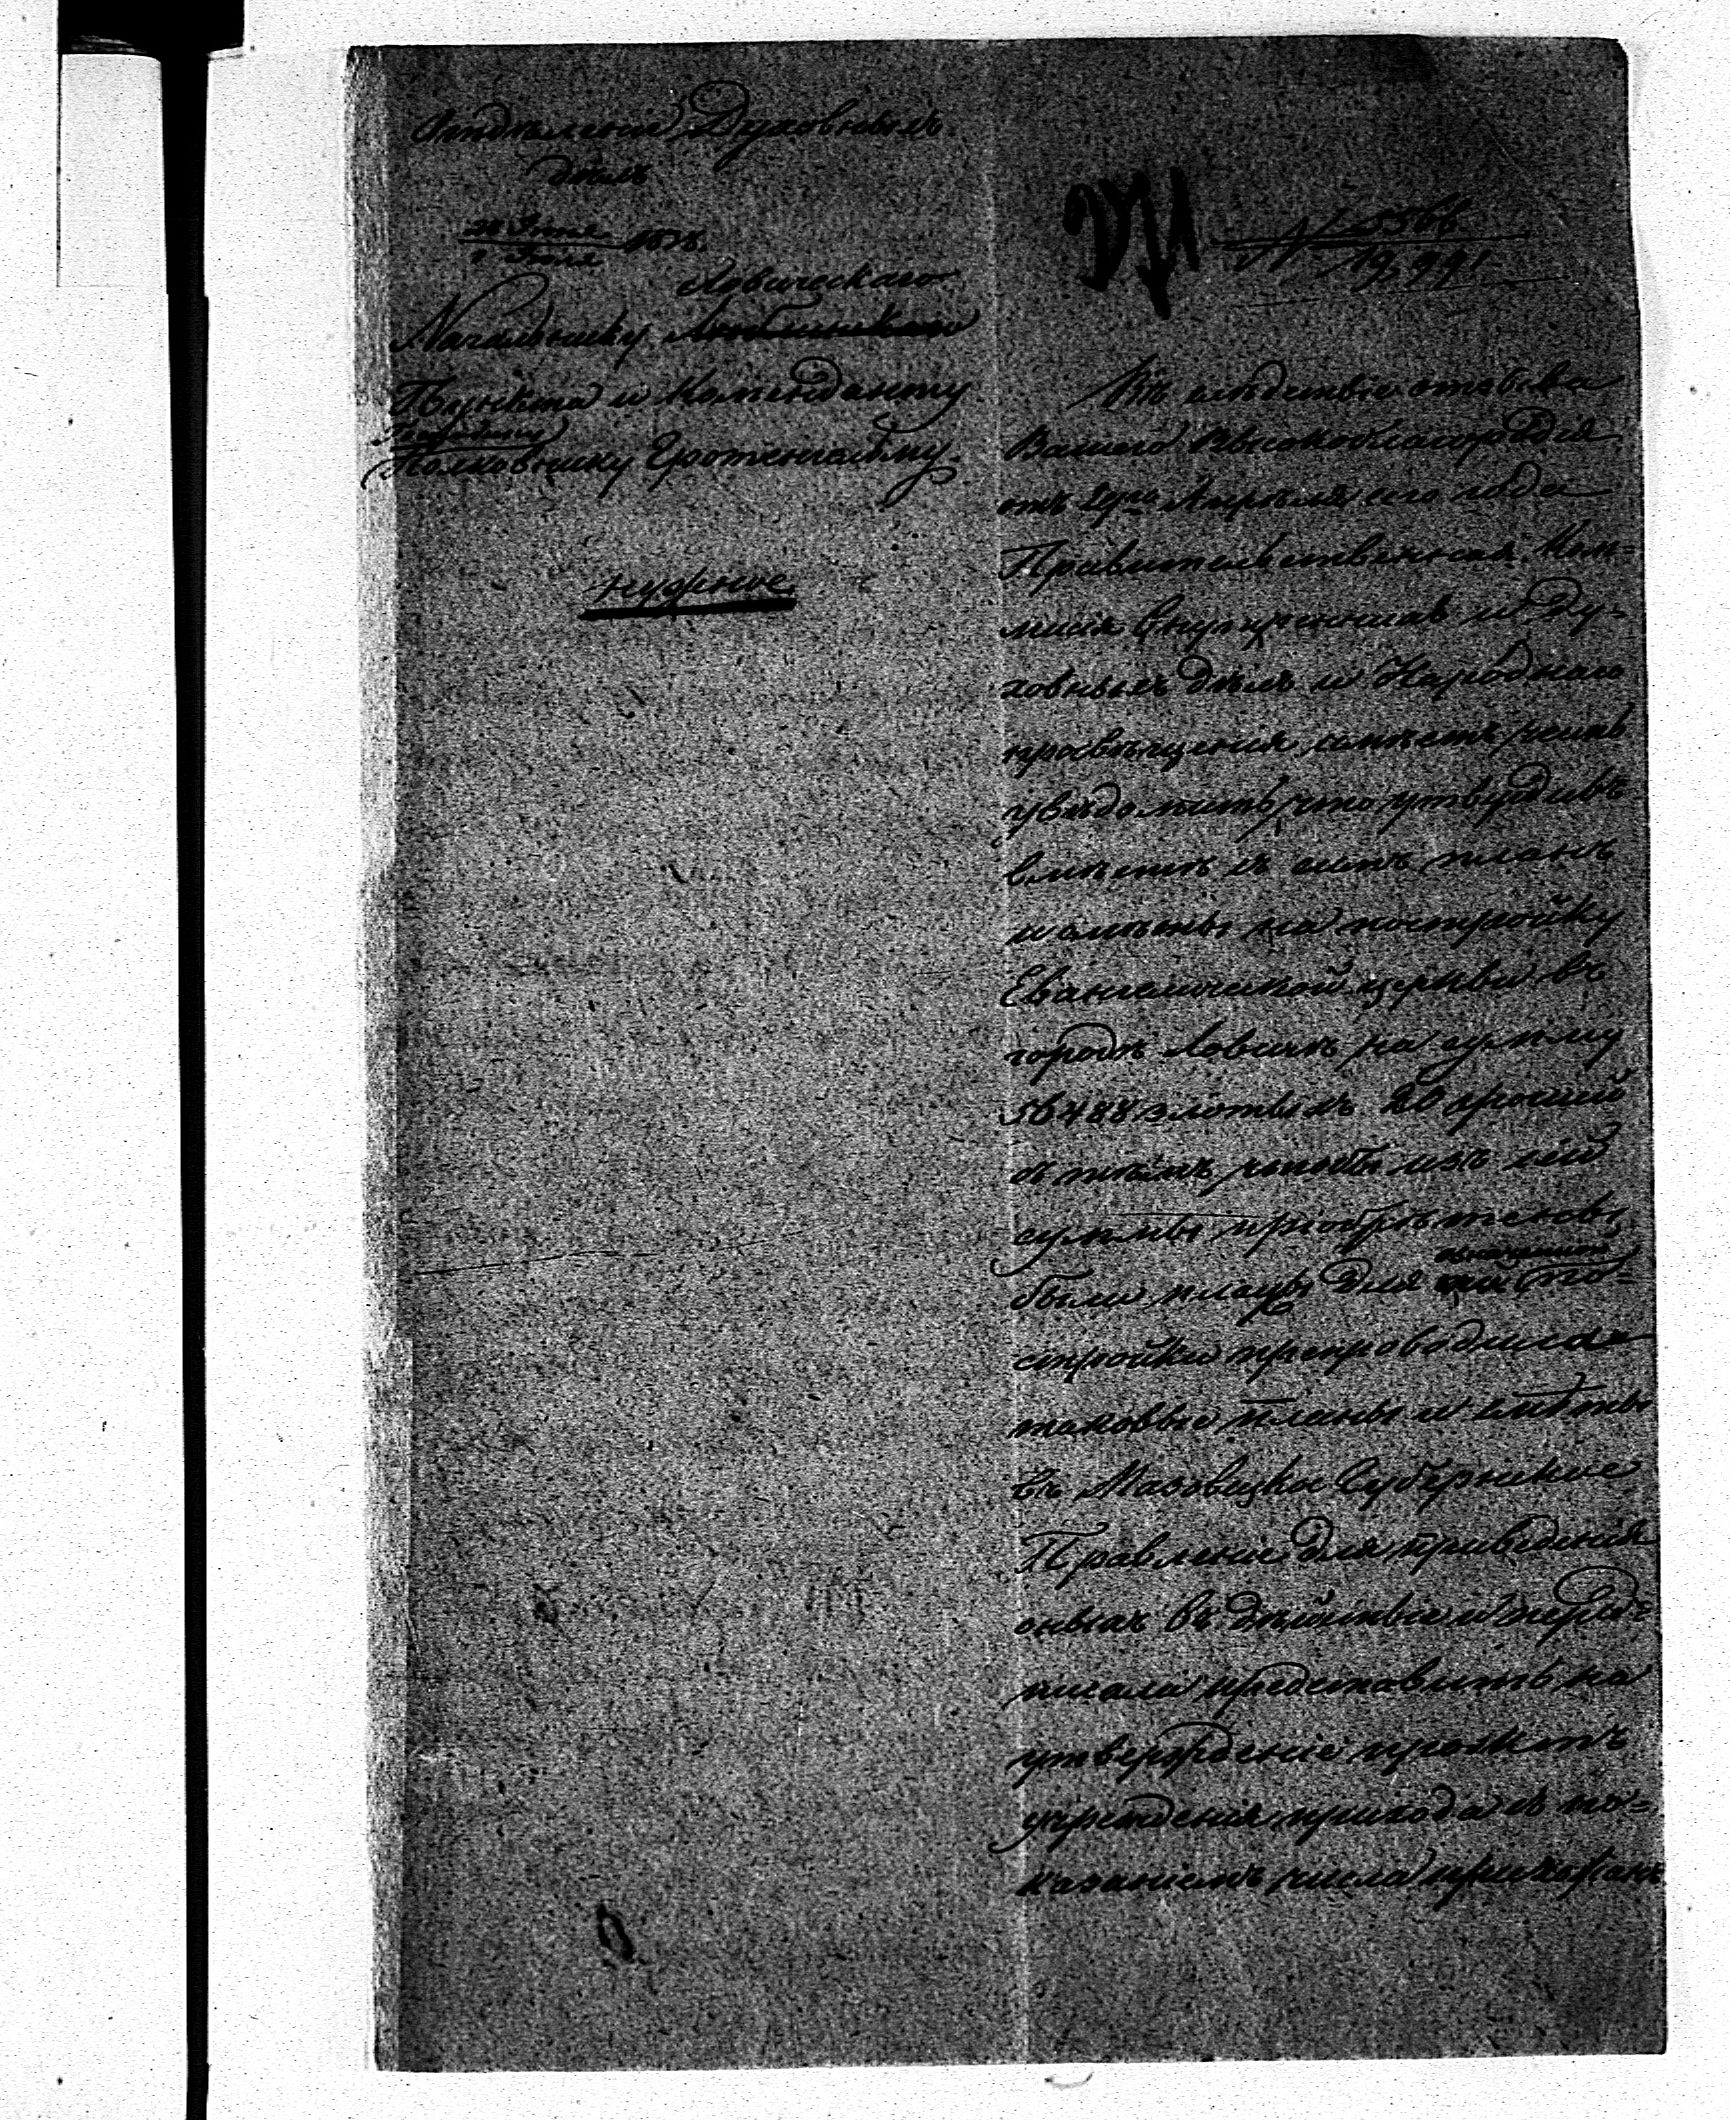 Отдѣленіе Духовныхъ
дѣлъ
Ловическаго
Начальнику
Пункта и Коменданту
Полковнику
нужное
19,991
Въ слѣдствіе отзыва
Вашего Высокоблагородія
отъ 29го Апрѣля сего года
Правительственная Ком=
мисія Внутреннихъ и Ду=
ховныхъ дѣлъ и Народнаго
просвѣщенія имѣетъ честь
увѣдомить, что утвердивъ
вмѣстѣ съ симъ планъ
и смѣты на постройку
Евангелической церкви въ
городѣ Ловичѣ на сумму
56488 злотыхъ 20 грошей
съ тѣмъ, чтобы изъ сей
суммы пріобрѣтены
были плацы для по=
стройки препроводила
таковые планы и смѣты
въ Мазовецкое Губернское
Правленіе для приведенія
оныхъ въ дѣйствіе и пред=
писала представить на
утвержденіе проэктъ
учрежденія прихода съ по=
казаніемъ числа прихожанъ